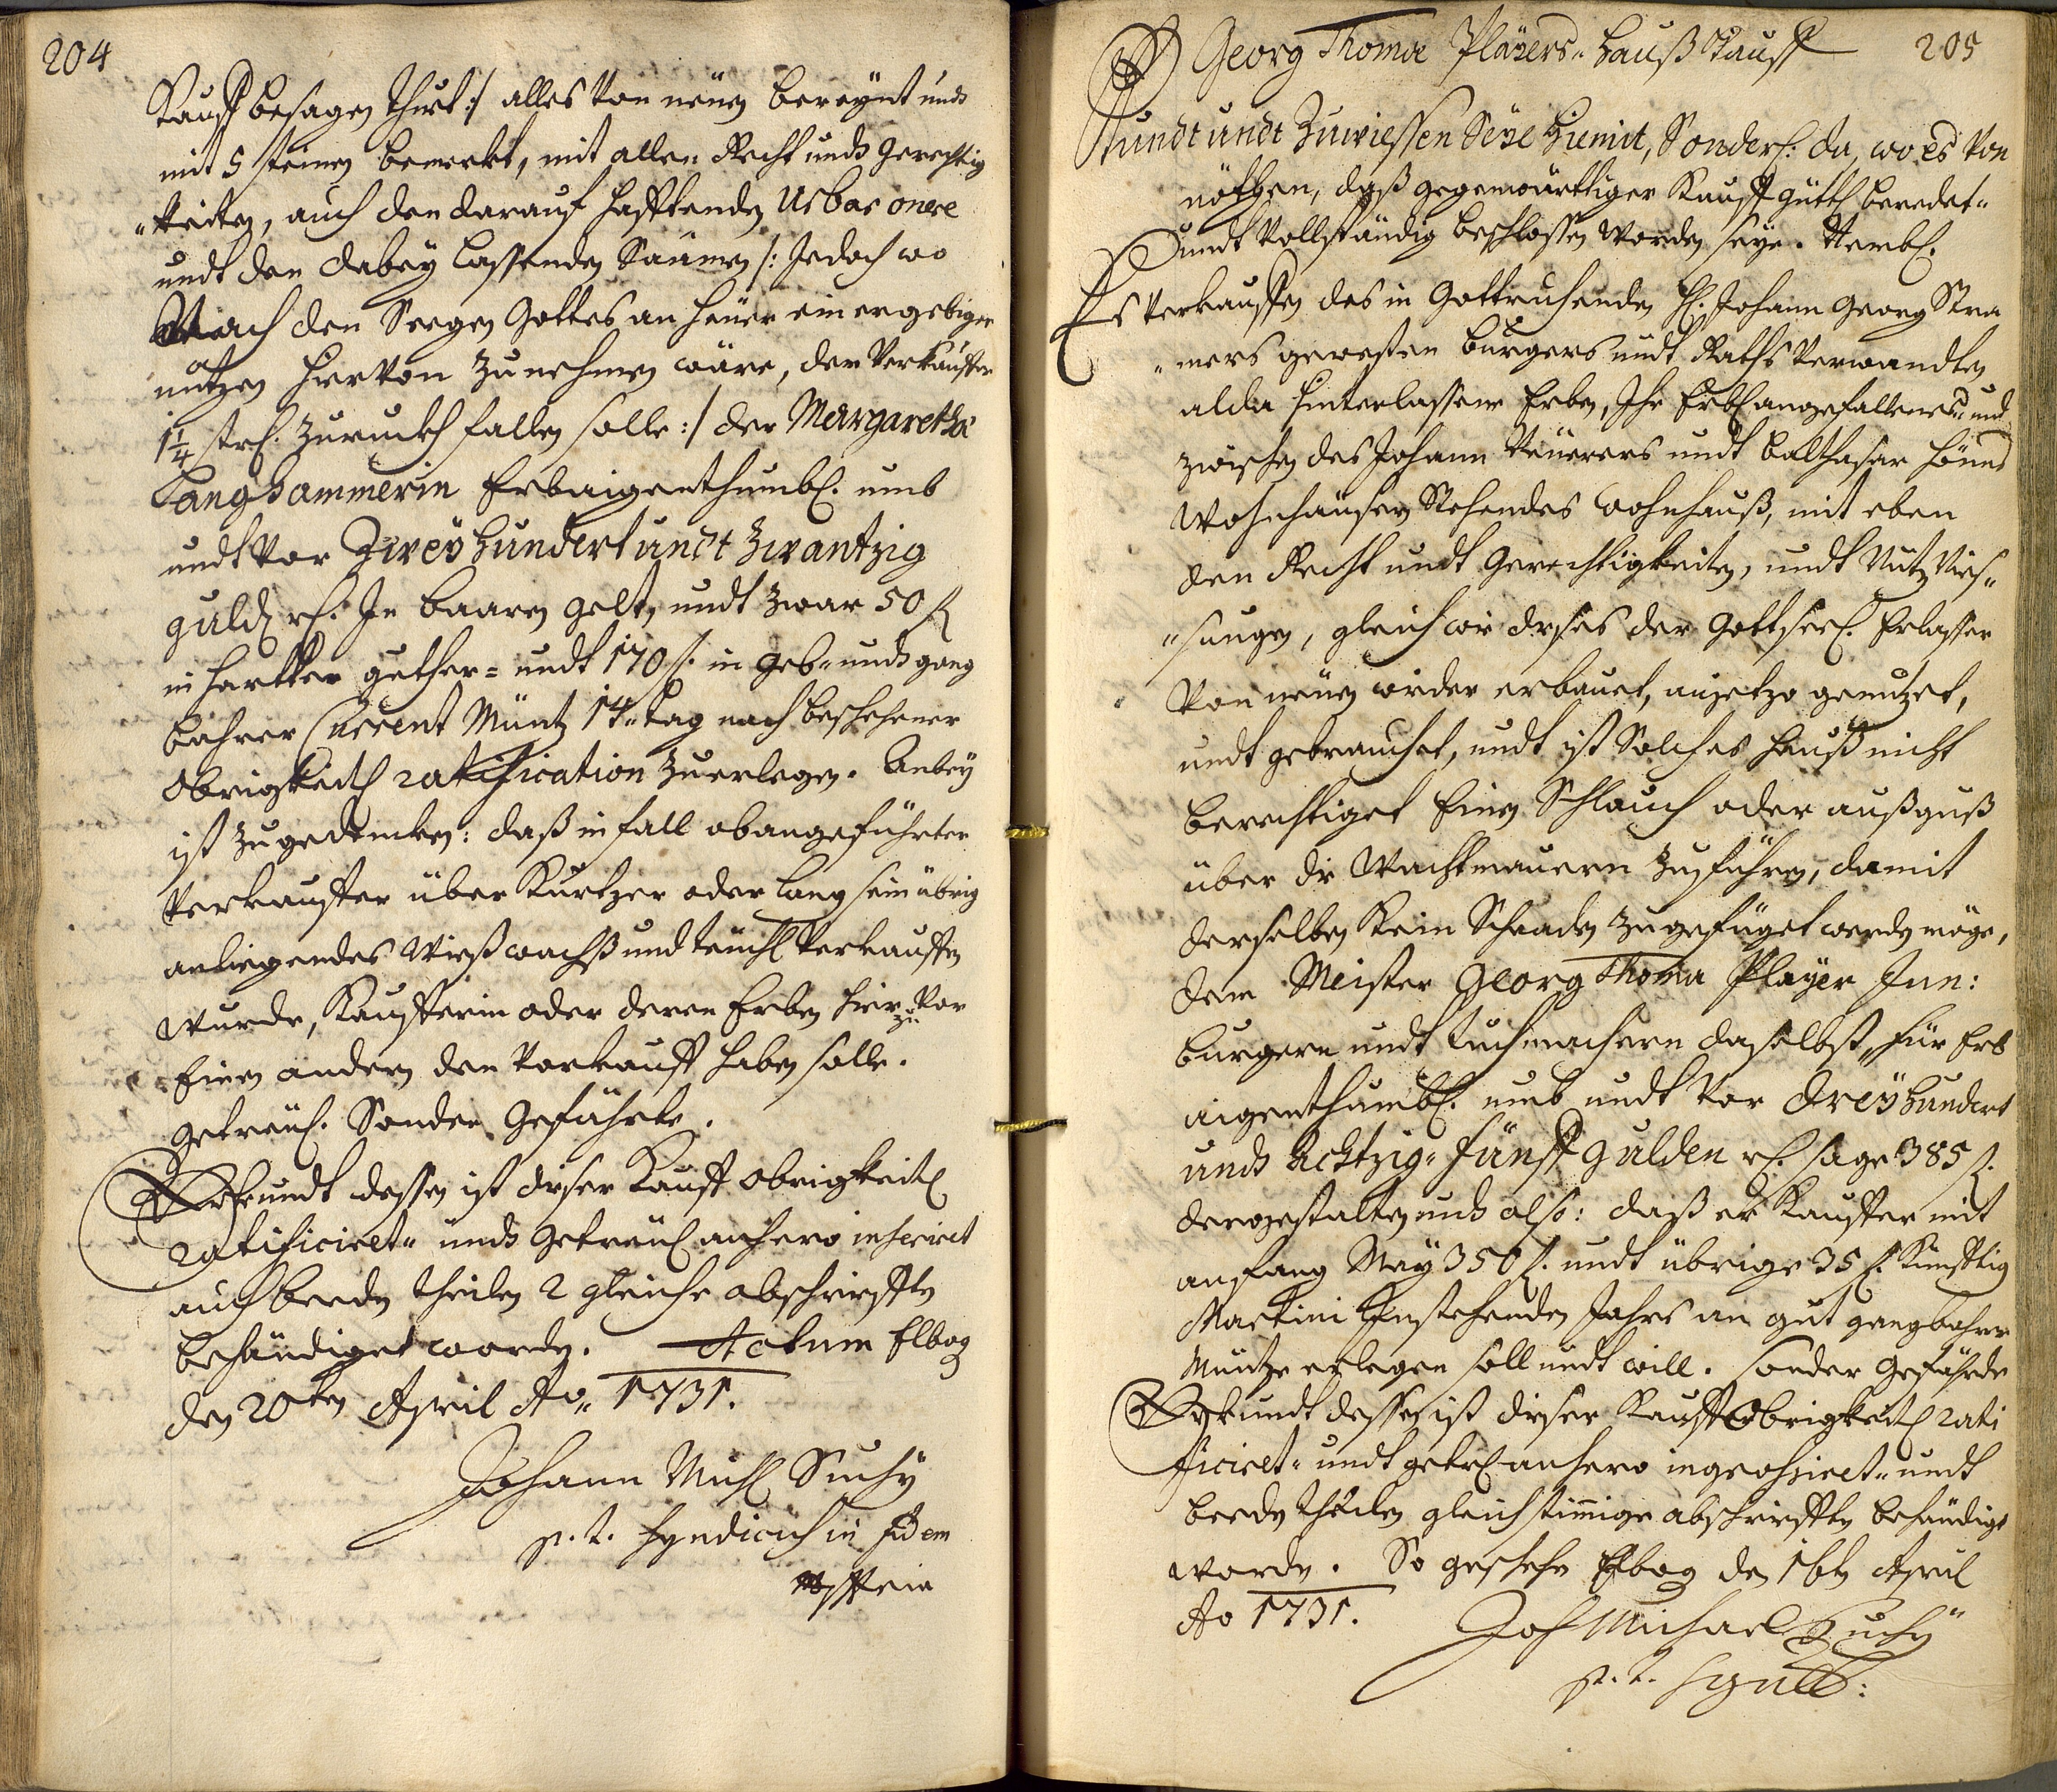 204
Kauff besagen thuet :/ alles von neüen bereÿnt undt
mit 5 steinen bemerkt, mit allen Recht undt gerechtig
"keiten, auch den darauf hafftenden Urbar onere
undt den dabey lassenden Saamen /: Jedoch wo
Nach den Seegen Gottes an heüer ein ergebiger
nutzen hiervon zunehmen wäre, der Verkauffer
1¼ str. zuruckh fallen solle :/ der Margaretha
Langhammerin Erbaigenthumbl. umb
undt vor Zweÿhundert undt Zwantzig
guld rh. In baaren gelt, undt zwar 50 fl
in hartter gelther= undt 170 f. in geb- undt gang
bahrer Current Müntz 14 tag nach beschehener
Obrigkeitl ratification zuerlegen. Anbeÿ
ist zugedencken: daß in fall obangeführter
Verkauffer über Kurtzer oder lang sein übrig
anliegendes Wießwachß und teücht verkauffen
wurde, Kaufferin oder deren Erben hierzu vor
Einen andern den Vorkauff haben solle.
getreül. Sonder Gefährte.
Urkundt dessen ist dieser Kauff Obrigkeitl
ratificiret" undt getreül anhero inseriret
auch beeden theilen 2 gleiche abschrifften
behändiget worden. Actum Elbog
den 20ten April Ao 1731.
Johann Michl Suchÿ
p. t. Syndicus in fidem
205
Georg Thomæ Plaÿers- Hauß Kauff
Kundt undt Zuwiessen Seÿe hiemit, Sonderl: da, wo es von
nöthen, daß gegenwärttiger Kauff güttl beredet-
undt Vollständig beschlossen worden seye. Nembl.
Es verkauffen des in Gott ruhenden H. Johann Georg Stra
"mers geweßten burgers undt Raths Verwandten
alda hinterlassene Erben, Ihr Erbl angefallenes- und
zwischen des Johann Neüerers undt Balthasar Hönns
Wohnhäuser Stehendes Wohnhauß, mit eben
den Recht undt Gerechtigkeiten, undt Nutz Nies-
"sungen, gleich wie dießes der Gottseel. Erlasser
von neüen wieder erbauet, anjetzo genutzet,
undt gebrauchet, undt ist Solches Hauß nicht
berechtiget Einen Schlauch oder außguß
über die Wachtmauern zuführen, damit
derselben Kein Schaaden zugefüget werden möge,
dem Meister Georg Thoma Player Jun:
burgern undt tuchmachern daselbst, für Erb
aigenthumbl. umb undt vor dreÿhundert
undt Achtzig- fünff gulden rh. sage 385 fl.
dergestalten undt also: daß er Kauffer mit
anfang Maÿ 350 fl. undt übrige 35 f. Künfftig
Martini Einstehenden Jahrs an gut gangbahrer
Müntze erlegen soll undt will. sonder Gefährde
Urkundt dessen ist dieser Kauff Obrigkeitl rati
ficiret- undt getrl anhero ingrossiret- undt
beeden theilen gleich stimige abschrifften behändigt
worden. So geschehen Elbog den 16ten April
Ao 1731.
Joh Michael Suchÿ
p. t. Synd: